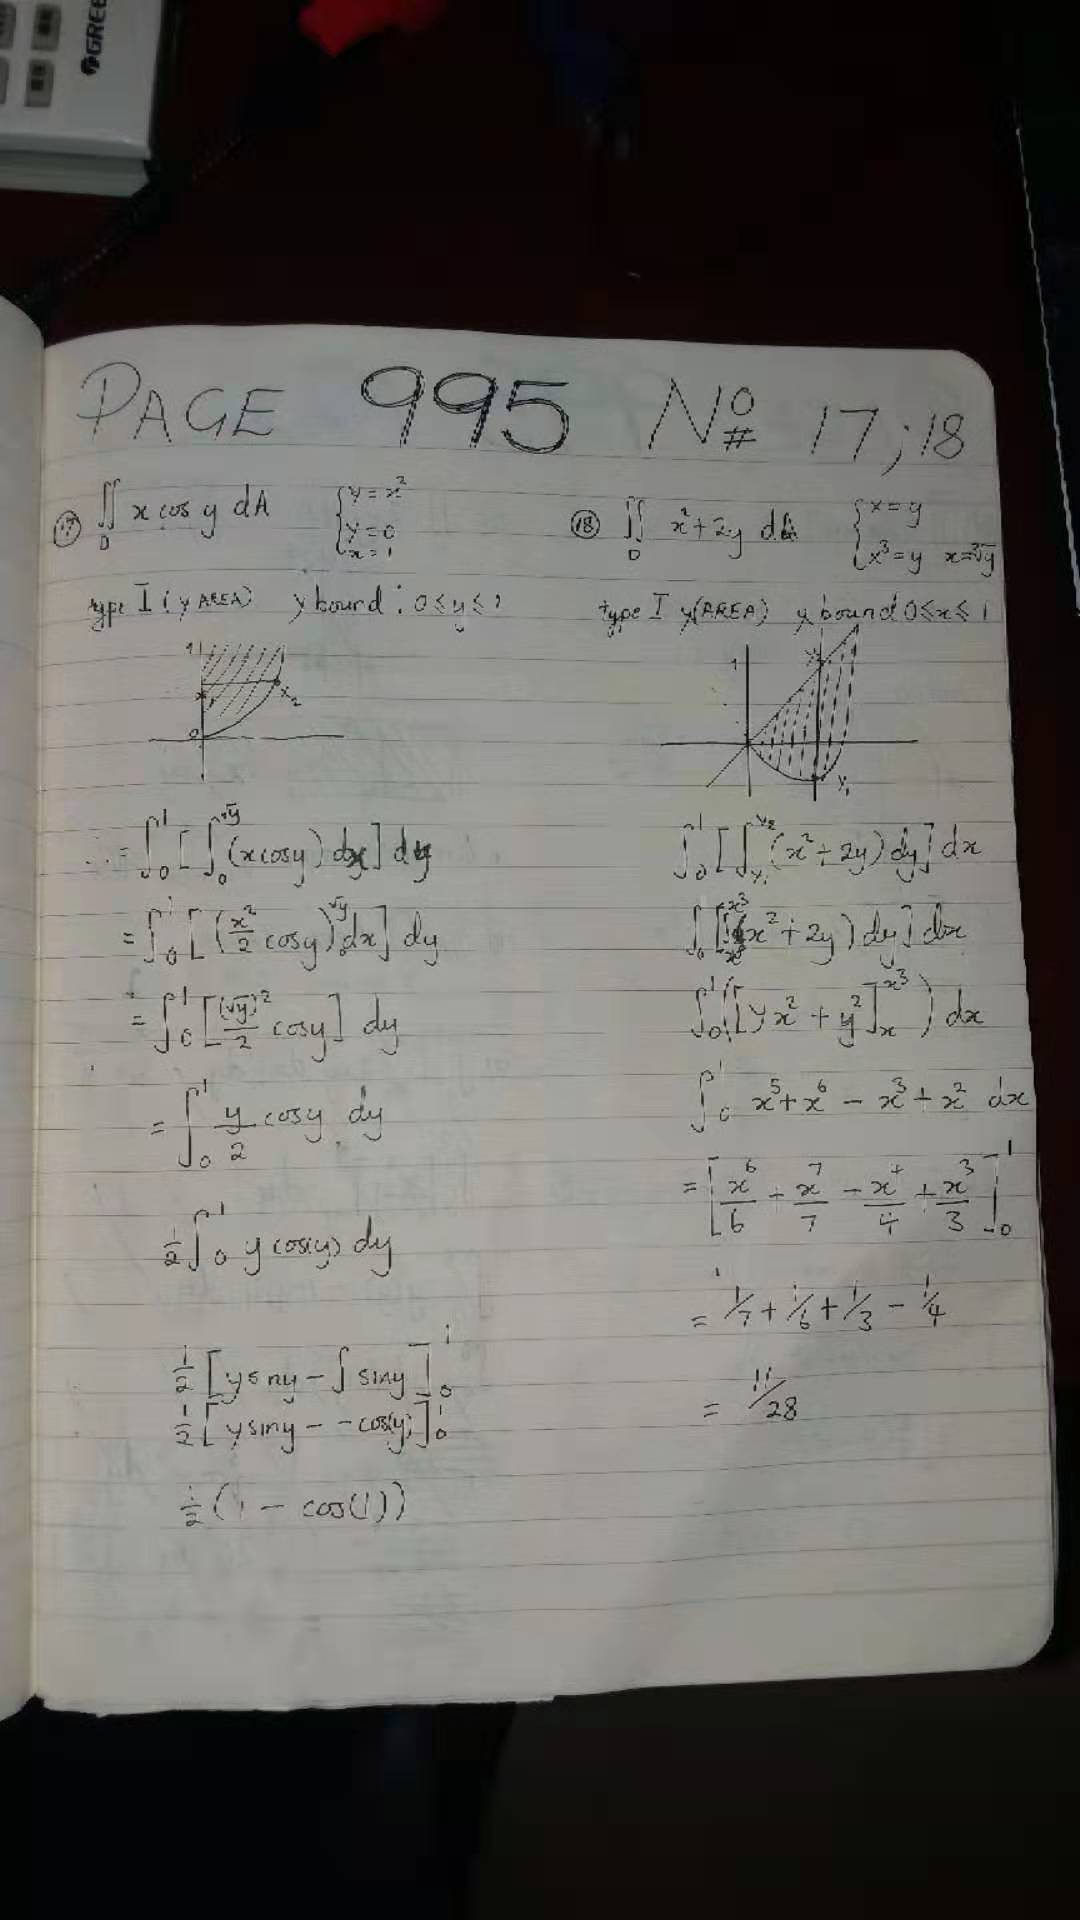 GREE
PAGE 995 Nº # 17 ; 18
⑰ ∬_D x cos y dA { y = x²
y = 0
x = 1
type I (y AREA) y bound : 0 ≤ y ≤ 1
1
x₁
x₂
0
= ∫₀¹ [ ∫₀^√y (x cos y) dx ] dy
= ∫₀¹ [ (x²/2 cos y)₀^√y dx ] dy
= ∫₀¹ [ (√y)²/2 cos y ] dy
= ∫₀¹ y/2 cos y dy
½ ∫₀¹ y cos(y) dy
½ [ y sin y − ∫ sin y ]₀¹
½ [ y sin y − − cos(y) ]₀¹
½ (1 − cos(1))
⑱ ∬_D x² + 2y dA { x = y
x³ = y x = ³√y
type I y(AREA) x bound 0 ≤ x ≤ 1
1
y₂
y₁
∫₀¹ [ ∫_y₁^y₂ (x² + 2y) dy ] dx
∫₀¹ [ ∫_x^x³ (x² + 2y) dy ] dx
∫₀¹ ( [ y x² + y² ]_x^x³ ) dx
∫₀¹ x⁵ + x⁶ − x³ + x² dx
= [ x⁶/6 + x⁷/7 − x⁴/4 + x³/3 ]₀¹
= 1/7 + 1/6 + 1/3 − 1/4
= 11/28